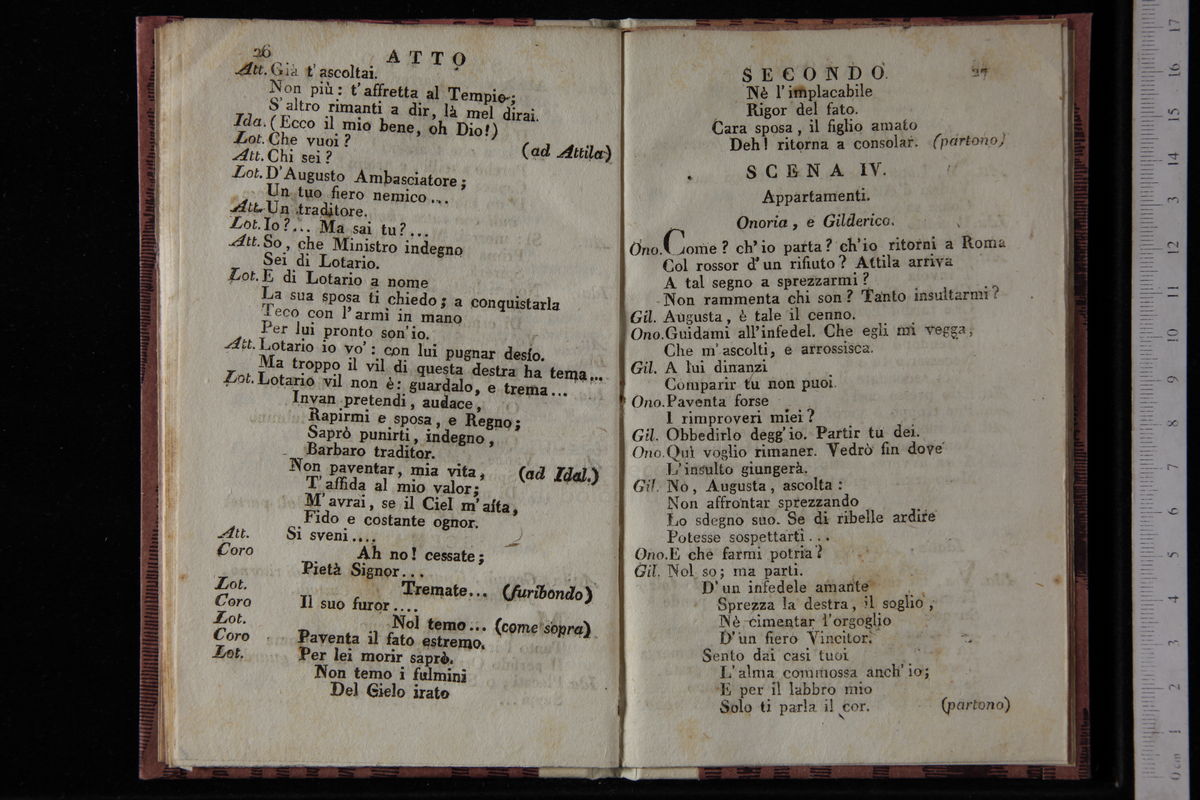 26
ATTO
Att. Già t'ascoltai.
Non più: t'affretta al Tempio;
S'altro rimanti a dir, là mel dirai.
Ida. (Ecco il mio bene, oh Dio!)
Lot. Che vuoi? (ad Attila)
Att. Chi sei?
Lot. D'Augusto Ambasciatore;
Un tuo fiero nemico...
Att. Un traditore.
Lot. Io?... Ma sai tu?...
Att. So, che Ministro indegno
Sei di Lotario.
Lot. E di Lotario a nome
La sua sposa ti chiedo; a conquistarla
Teco con l'armi in mano
Per lui pronto son'io.
Att. Lotario io vo': con lui pugnar desío.
Ma troppo il vil di questa destra ha tema...
Lot. Lotario vil non è: guardalo, e trema...
Invan pretendi, audace,
Rapirmi e sposa, e Regno;
Saprò punirti, indegno,
Barbaro traditor.
Non paventar, mia vita, (ad Idal.)
T'affida al mio valor;
M'avrai, se il Ciel m'aita,
Fido e costante ognor.
Att. Si sveni....
Coro Ah no! cessate;
Pietà Signor...
Lot. Tremate... (furibondo)
Coro Il suo furor....
Lot. Nol temo... (come sopra)
Coro Paventa il fato estremo.
Lot. Per lei morir saprò.
Non temo i fulmini
Del Cielo irato
SECONDO.
27
Nè l'implacabile
Rigor del fato.
Cara sposa, il figlio amato
Deh! ritorna a consolar. (partono)
SCENA IV.
Appartamenti.
Onoria, e Gilderico.
Ono. Come? ch'io parta? ch'io ritorni a Roma
Col rossor d'un rifiuto? Attila arriva
A tal segno a sprezzarmi?
Non rammenta chi son? Tanto insultarmi?
Gil. Augusta, è tale il cenno.
Ono. Guidami all'infedel. Che egli mi vegga,
Che m'ascolti, e arrossisca.
Gil. A lui dinanzi
Comparir tu non puoi.
Ono. Paventa forse
I rimproveri miei?
Gil. Obbedirlo degg'io. Partir tu dei.
Ono. Quì voglio rimaner. Vedrò fin dove
L'insulto giungerà.
Gil. No, Augusta, ascolta:
Non affrontar sprezzando
Lo sdegno suo. Se di ribelle ardire
Potesse sospettarti...
Ono. E che farmi potria?
Gil. Nol so; ma parti.
D'un infedele amante
Sprezza la destra, il soglio,
Nè cimentar l'orgoglio
D'un fiero Vincitor.
Sento dai casi tuoi
L'alma commossa anch'io;
E per il labbro mio
Solo ti parla il cor. (partono)
0 cm 1 2 3 4 5 6 7 8 9 10 11 12 13 14 15 16 17